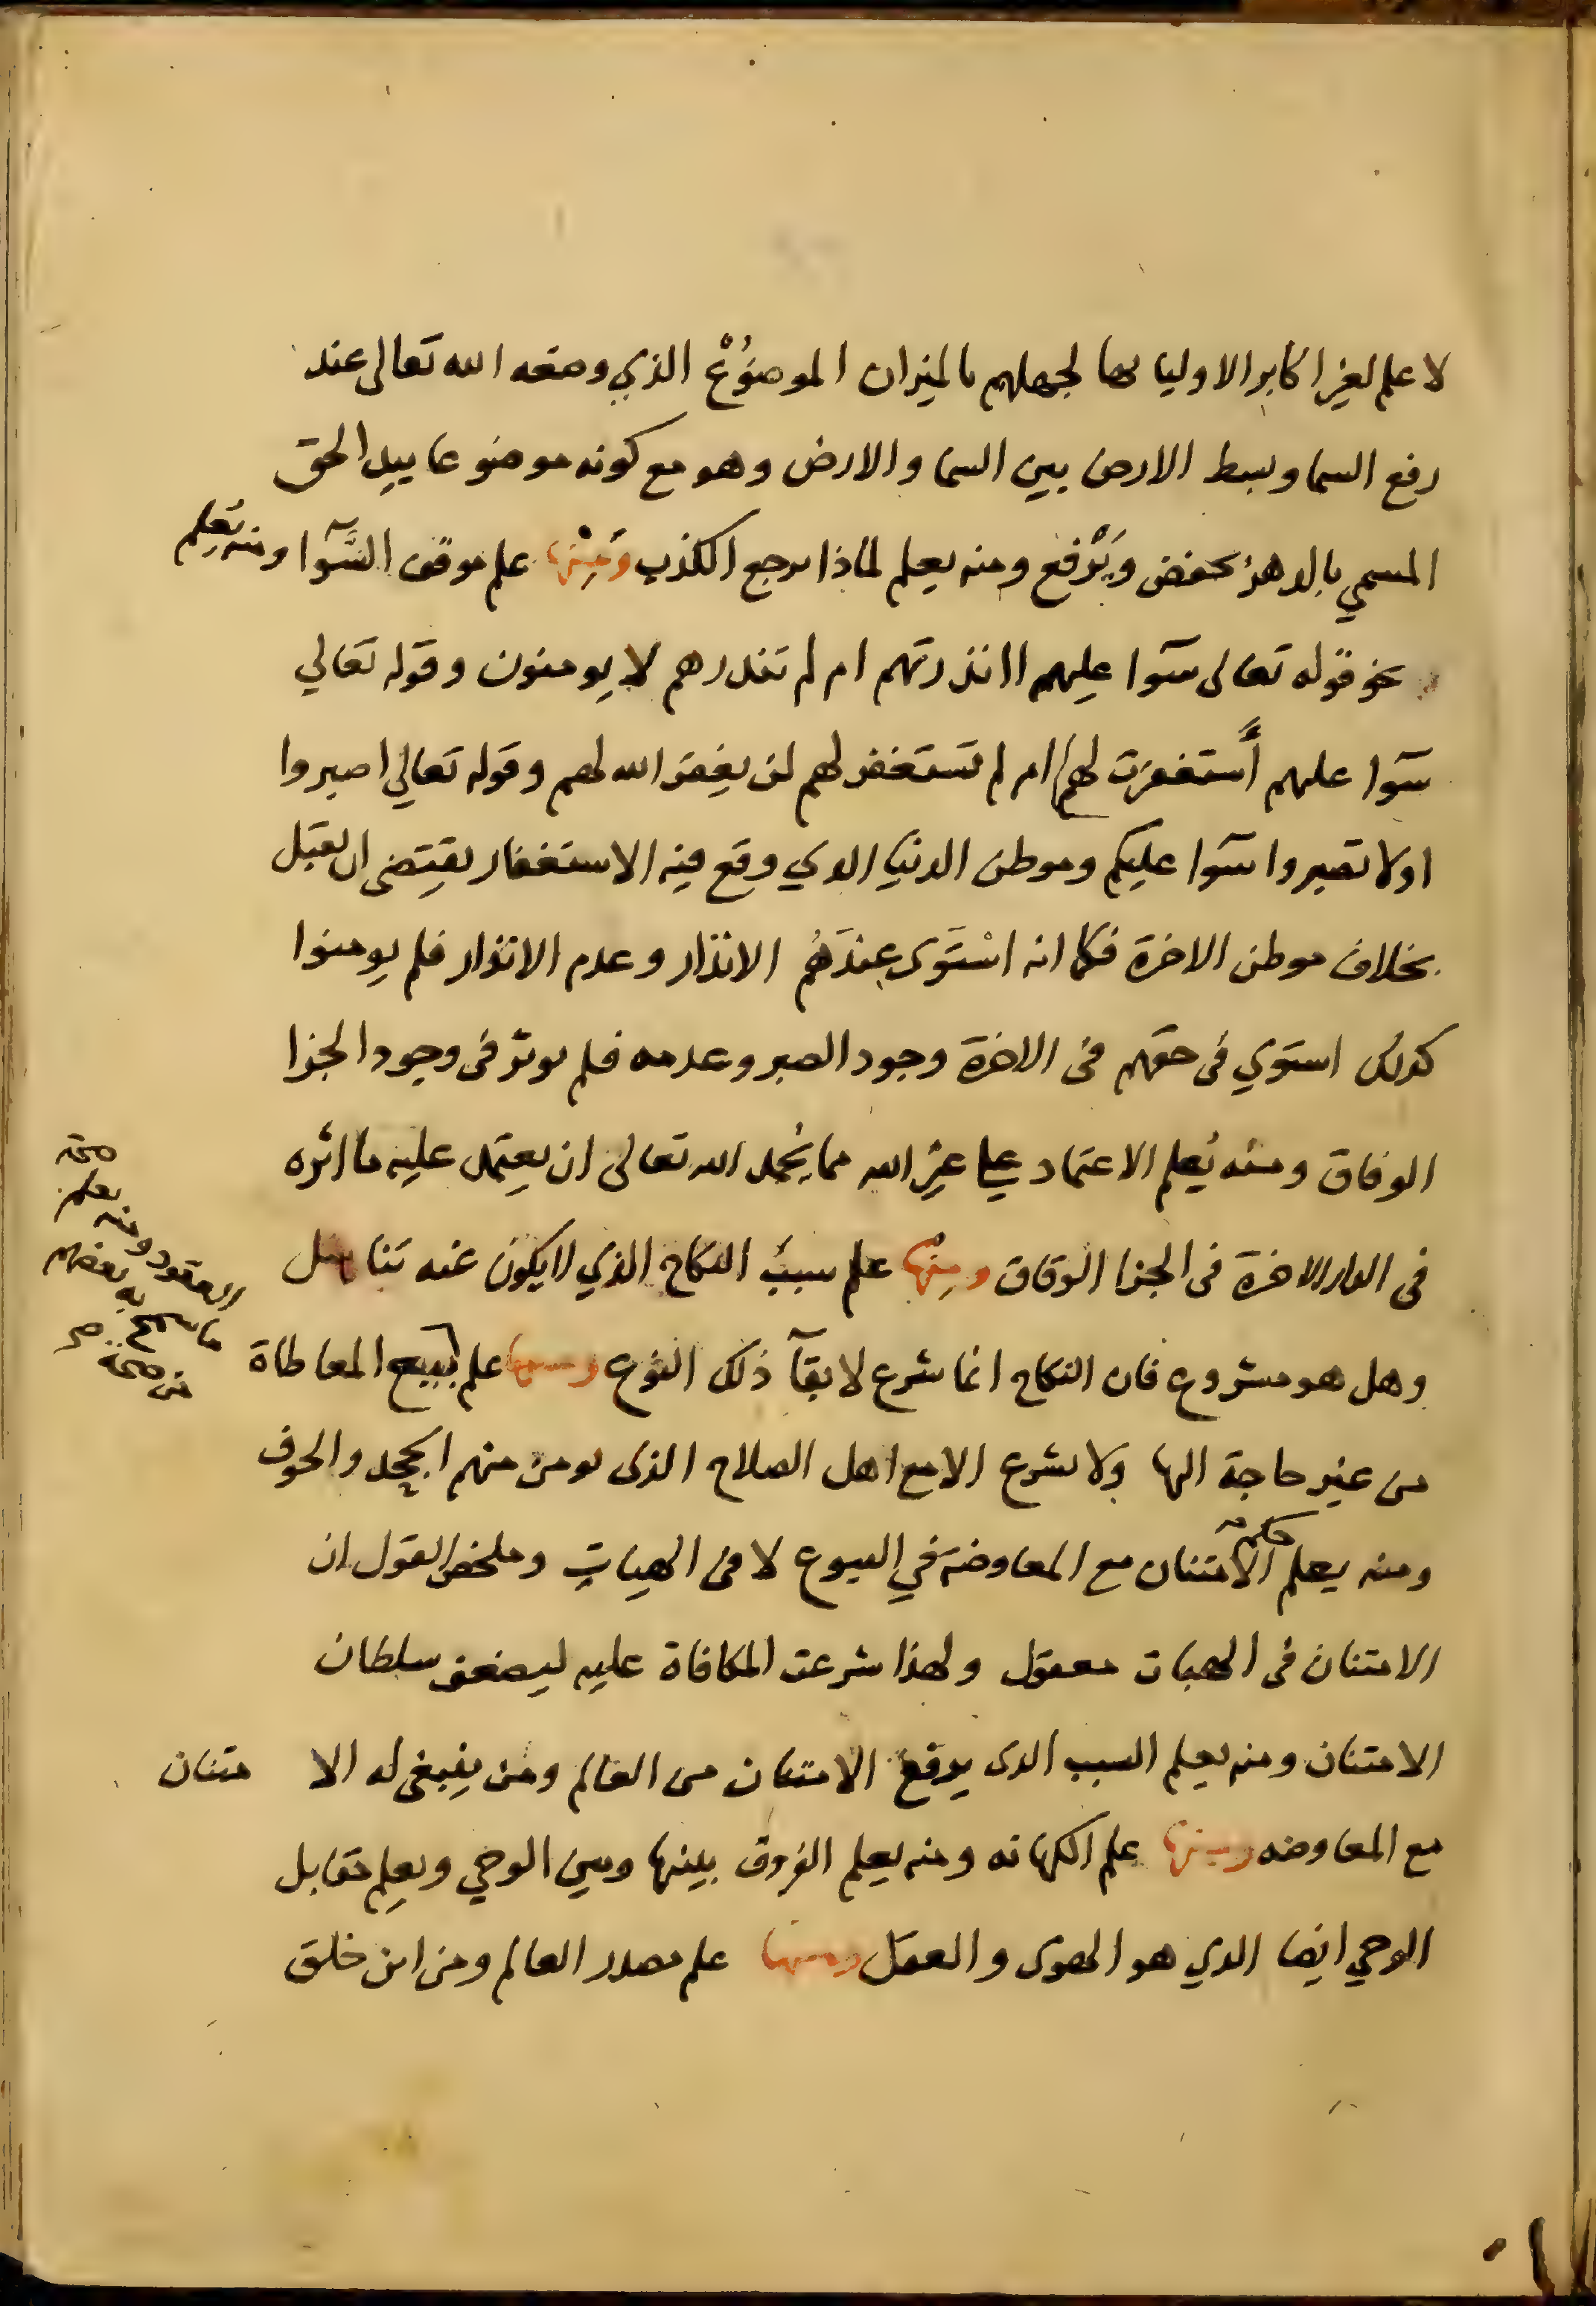 لا علم لغير اكابر الاوليا بها لجهلهم بالميزان الموضوع الذي وضعه الله تعالى عند
رفع السما وبسط الارض بين السما والارض وهو مع كونه موضوعا بيد الحق
المسمي بالدهر يخفض ويرفع ومنه يعلم لماذا يرجع الكذب ومنها علم موقف السَّوآ ومنه يُعلم
نحو قوله تعالى سوآ عليهم اانذرتهم ام لم تنذرهم لا يومنون وقوله تعالي
سوآ عليهم أستغفرت لهم ام لم تستغفر لهم لن يغفر الله لهم وقوله تعالي اصبروا
اولا تصبروا سوآ عليكم وموطن الدنيا الذي وقع فيه الاستغفار يقتضى ان يقبل
بخلاف موطن الاخرة فكما انه اسْتَوَى عِندَهُم الانذار وعدم الانذار فلم يومنوا
كذلك استوي فى حقهم فى الاخرة وجود الصبر وعدمه فلم يوثر فى وجود الجزا
الوفاق ومنه يُعلم الاعتماد علي غير الله مما يُحمد الله تعالى ان يعتمد عليه ما اثره
فى الدار الاخرة فى الجزا الوفاق ومنها علم سبب النكاح الذي لا يكون عنه تناسل
وهل هو مشروع فان النكاح انما شرع لابقآ ذلك النوع ومنها علم بيع المعاطاة
من غير حاجة اليها ولا يشرع الا مع اهل الصلاح الذى يومن منهم الجحد والخوف
ومنه يعلم حكم الامتنان مع المعاوضة في البيوع لا فى الهبات وملخص القول ان
الامتنان فى الهبات معقول ولهذا شرعت المكافاة عليه ليضعف سلطان
الامتنان ومنه يعلم السبب الذى يوقع الامتنان من العالم ومن ينبغى له الامتنان
مع المعاوضه ومنها علم الكهانه ومنه يعلم الفروق بينها وبين الوحي ويعلم مقابل
الوحي ايضا الذي هو الهوى والعقل ومنها علم مصدر العالم ومن اين خلق
صحة
العقود ومنه يعلم
ما يسمح به بعضهم
من صحة